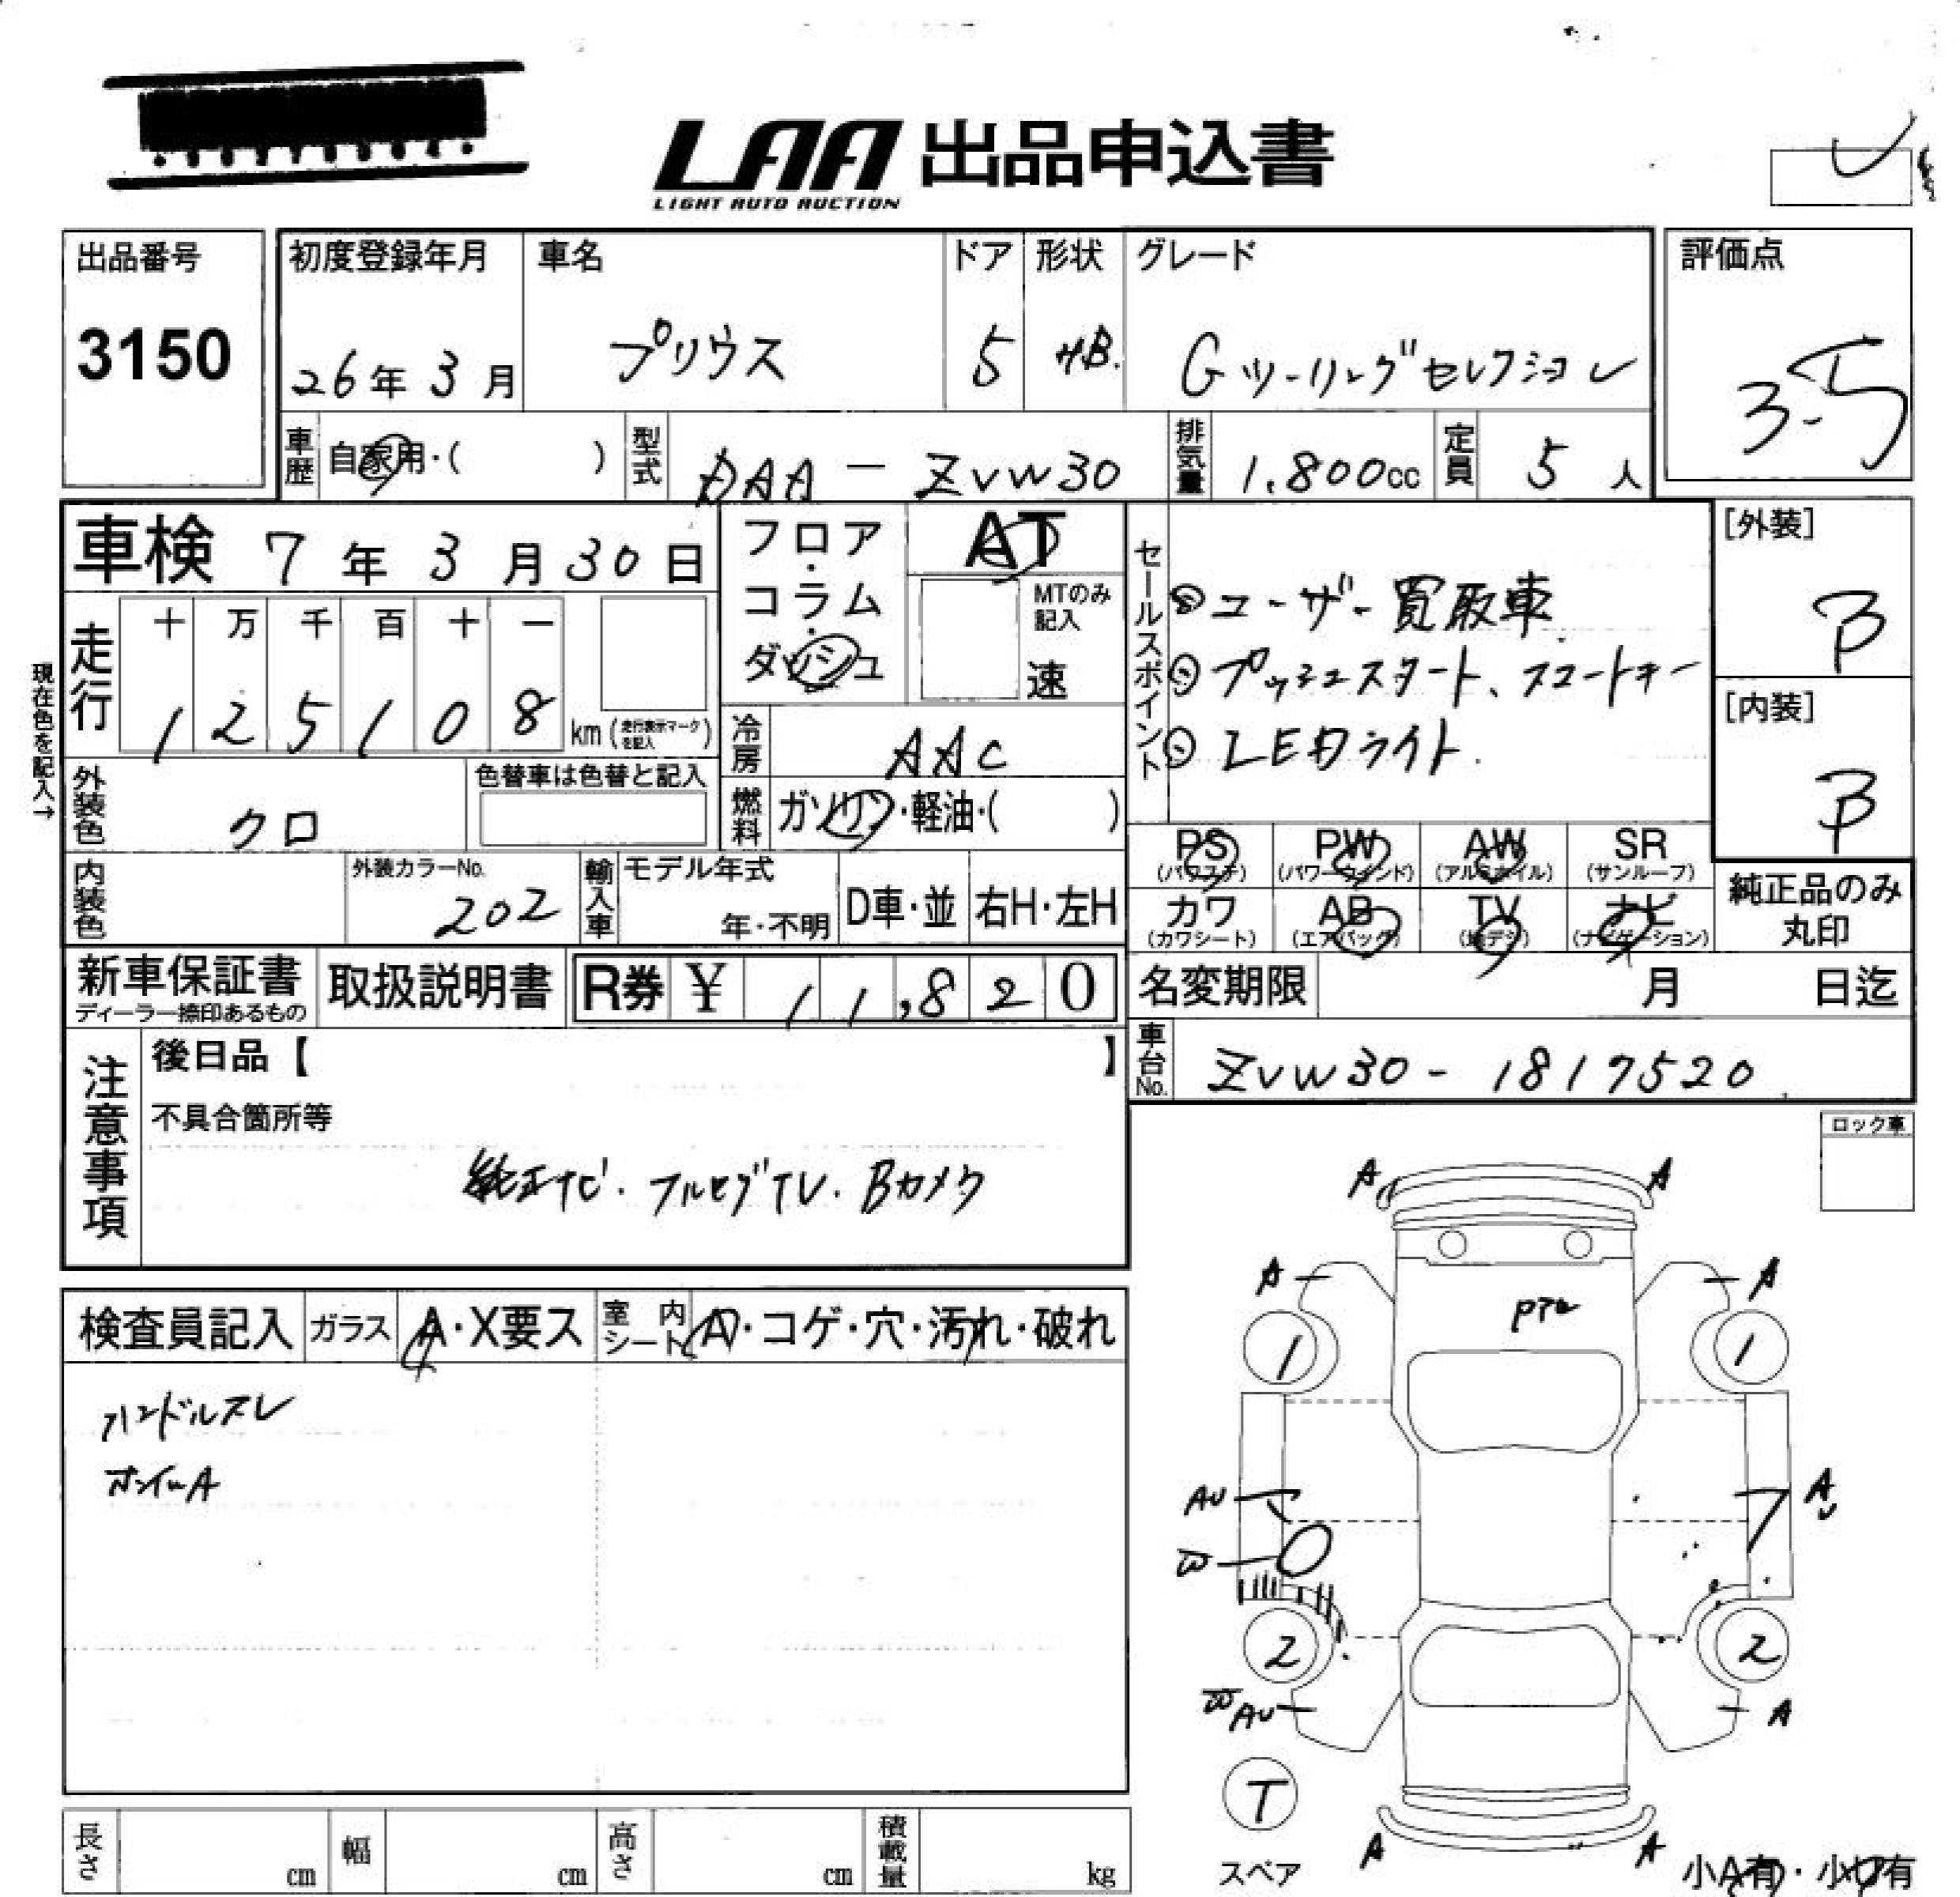 LAA 出品申込書
LIGHT AUTO AUCTION
出品番号
3150
初度登録年月
26年3月
車名
プリウス
ドア
5
形状
HB.
グレード
Gツーリングセレクション
評価点
3.5
車歴
自家用・( )
型式
DAA-ZVW30
排気量
1.800cc
定員
5人
車検 7年3月30日
フロア・
コラム・
ダッシュ
AT
MTのみ
記入
速
セールスポイント
ユーザー買取車
プッシュスタート、スマートキー
LEDライト.
[外装]
B
[内装]
B
現在色を記入→
走行
十 万 千 百 十 一
1 2 5 1 0 8
km (走行表示マークを記入)
冷房
AAC
外装色
クロ
色替車は色替と記入
燃料
ガソリン・軽油・( )
PS
(パワステ)
PW
(パワーウインド)
AW
(アルミホイル)
SR
(サンルーフ)
内装色
外装カラーNo.
202
輸入車
モデル年式
年・不明
D車・並
右H・左H
カワ
(カワシート)
AB
(エアバッグ)
TV
(地デジ)
ナビ
(ナビゲーション)
純正品のみ
丸印
新車保証書
ディーラー捺印あるもの
取扱説明書
R券 ¥ 11,820
名変期限 月 日迄
車台No.
ZVW30-1817520
注意事項
後日品【 】
不具合箇所等
純正ナビ. フルセグTV. Bカメラ
ロック車
検査員記入
ガラス
A・X要ス
室内シート
A・コゲ・穴・汚れ・破れ
ハンドルスレ
ホイールA
A A
A A
1 1
AU AU
W
2 2
W AU A
T
スペア
A A
小A有・小U有
長さ cm
幅 cm
高さ cm
積載量 kg